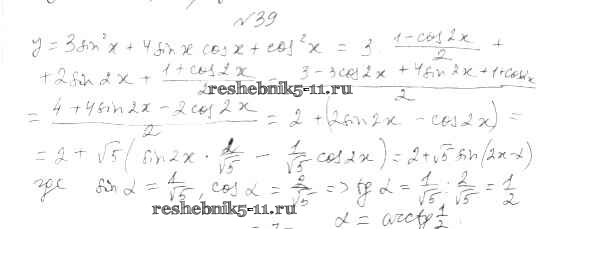 №39
y = 3sin²x + 4sinx cosx + cos²x = 3 · (1-cos2x)/2 +
+ 2sin2x + (1+cos2x)/2 = (3-3cos2x+4sin2x+1+cos2x)/2
reshebnik5-11.ru
= (4+4sin2x-2cos2x)/2 = 2 + (2sin2x - cos2x) =
= 2 + √5 ( sin2x · 2/√5 - 1/√5 cos2x ) = 2 + √5 sin(2x-α)
где sin α = 1/√5, cos α = 2/√5 => tg α = 1/√5 : 2/√5 = 1/2
reshebnik5-11.ru
α = arctg 1/2.